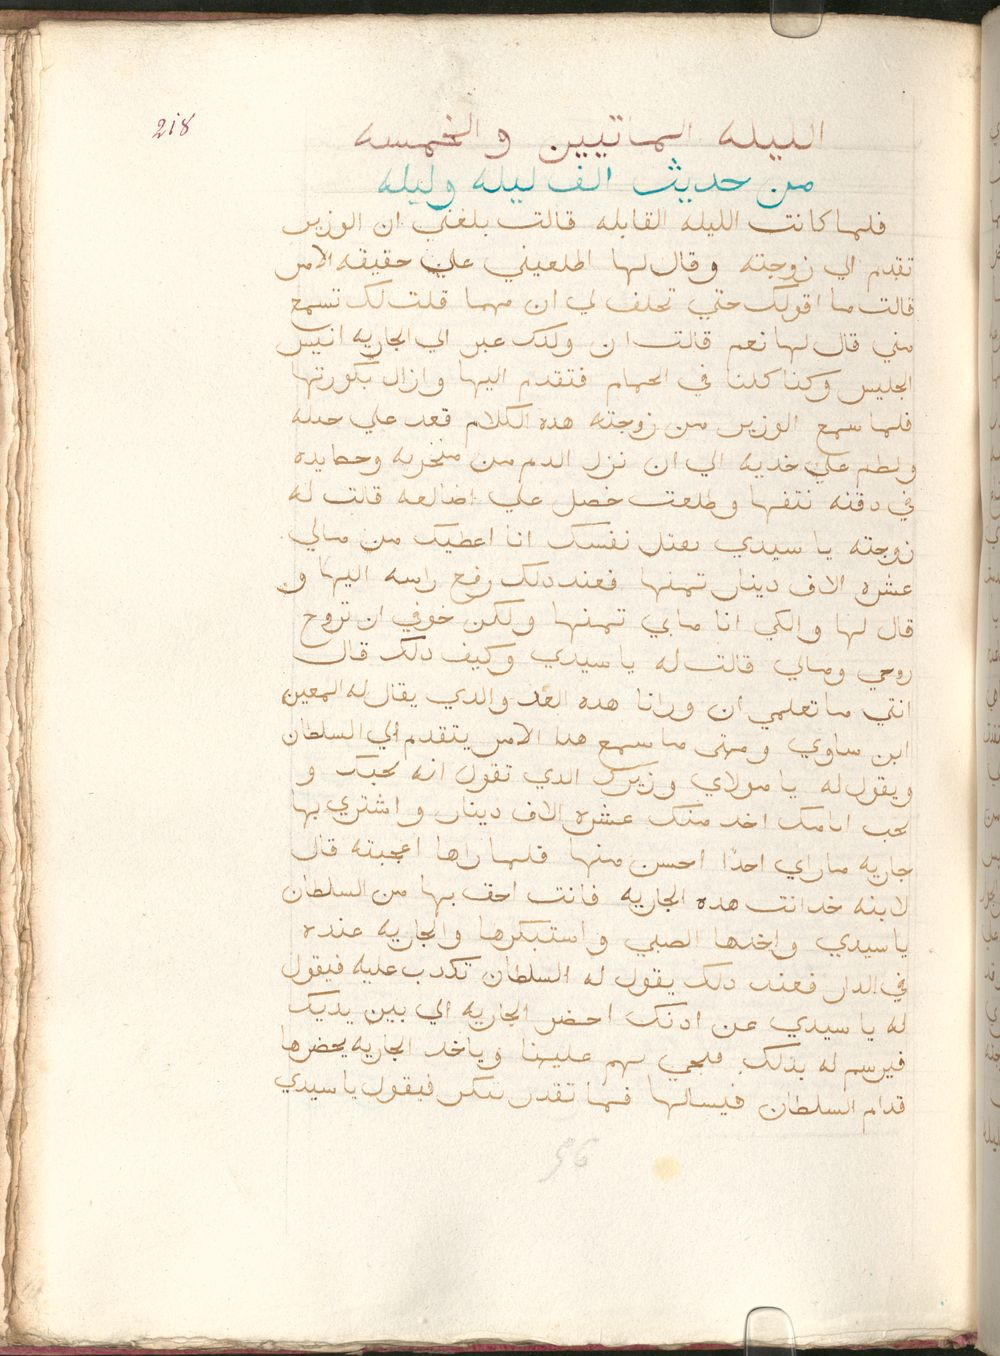 218
الليله الماتيين و الخمسه
من حديث الف ليله وليله
فلما كانت الليله القابله قالت بلغني ان الوزير
تقدم الي زوجته وقال لها اطلعيني علي حقيقه الامر
قالت ما اقولك حتي تحلف لي ان مهما قلت لك تسمع
مني قال لها نعم قالت ان ولدك عبر الي الجاريه انيس
الجليس وكنا كلنا في الحمام فتقدم اليها وازال بكورتها
فلما سمع الوزير من زوجته هده الكلام قعد علي حيله
ولطم علي خديه الي ان نزل الدم من منخريه وحط ايده
في دقنه نتفها وطلعت خصل علي اضالعه قالت له
زوجته يا سيدي تقتل نفسك انا اعطيك من مالي
عشره الاف دينار تمنها فعند دلك رفع راسه اليها و
قال لها والكي انا مابي تمنها ولكن خوفي ان تروح
روحي ومالي قالت له يا سيدي وكيف دلك قال
انتي ما تعلمي ان ورانا هده العدو الدي يقال له المعين
ابن ساوي ومتى ما سمع هدا الامر يتقدم الي السلطان
ويقول له يا مولاي وزيرك الدي تقول انه يحبك و
يحب ايامك اخد منك عشره الاف دينار واشتري بها
جاريه ماراي احدًا احسن منها فلما راها اعجبته قال
لابنه خد انت هده الجاريه فانت احق بها من السلطان
يا سيدي واخدها الصبي واستبكرها والجاريه عنده
في الدار فعند دلك يقول له السلطان تكدب عليه فيقول
له يا سيدي عن ادنك احضر الجاريه الي بين يديك
فيرسم له بذلك فيجي يهم علينا وياخد الجاريه يحضرها
قدام السلطان فيسالها فما تقدر تنكر فيقول يا سيدي